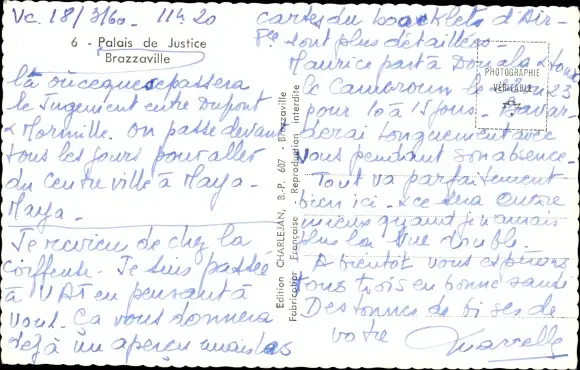 Vc. 18/3/60 - 11h20
6 - Palais de Justice
Brazzaville
là où ce que se passera
le Jugement entre Dupont
& . On passe devant
tous les jours pour aller
du Centre ville à Maya-
Maya -
Je reviens de chez la
coiffeuse. Je suis passée
à UAT en pensant à
vous. Ça vous donnera
déjà un aperçu mais les
Edition CHARLEJAN, B.-P. 607 - Brazzaville
Fabrication Française - Reproduction Interdite
cartes du booklets d'Air-
Fce sont plus détaillées -
Maurice part à Douala & tous
le Cameroun le 23
pour 10 à 15 jours -
longuement avec
vous pendant son absence -
Tout va parfaitement
bien ici - & ce sera encore
mieux quand je n'aurais
plus la vue trouble.
A bientôt vous espérons
tous trois en bonne santé
Des tonnes de bises de
votre Marcelle
PHOTOGRAPHIE
VÉRITABLE